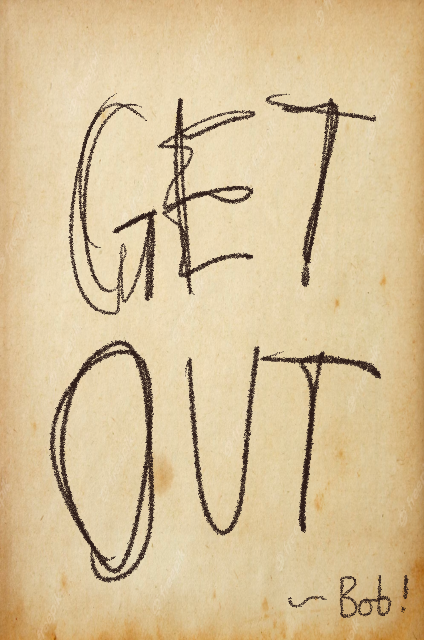 GET
OUT
~ Bob!